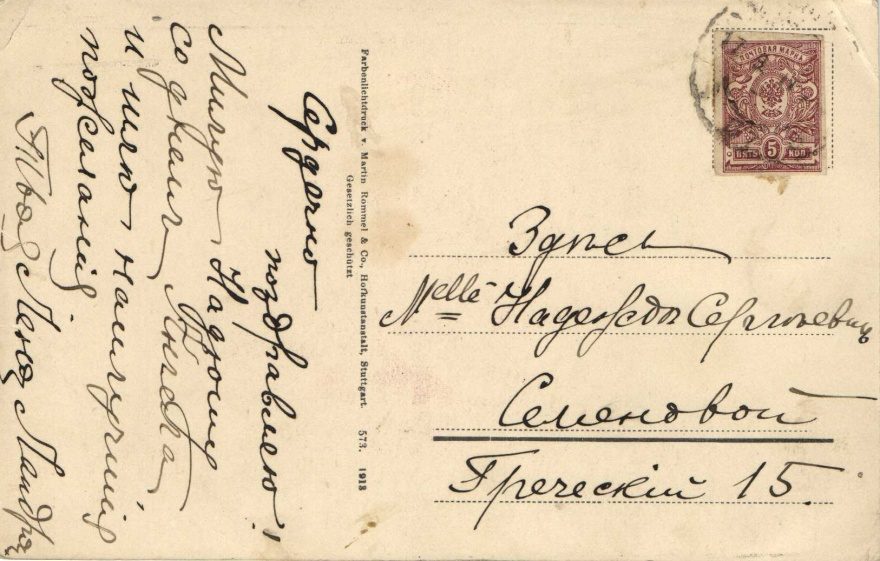 Сердечно
поздравляю!
Милую Надюшу
со днемъ Ангела
и шлю наилучшія
пожеланія
Твоя Лена
Farbenlichtdruck v. Martin Rommel & Co., Hofkunstanstalt, Stuttgart. 573. 1913
Gesetzlich geschützt
ПОЧТОВАЯ МАРКА
5 КОП
Здѣсь
Melle Надеждѣ Сергѣевнѣ
Семеновой
Греческій 15.